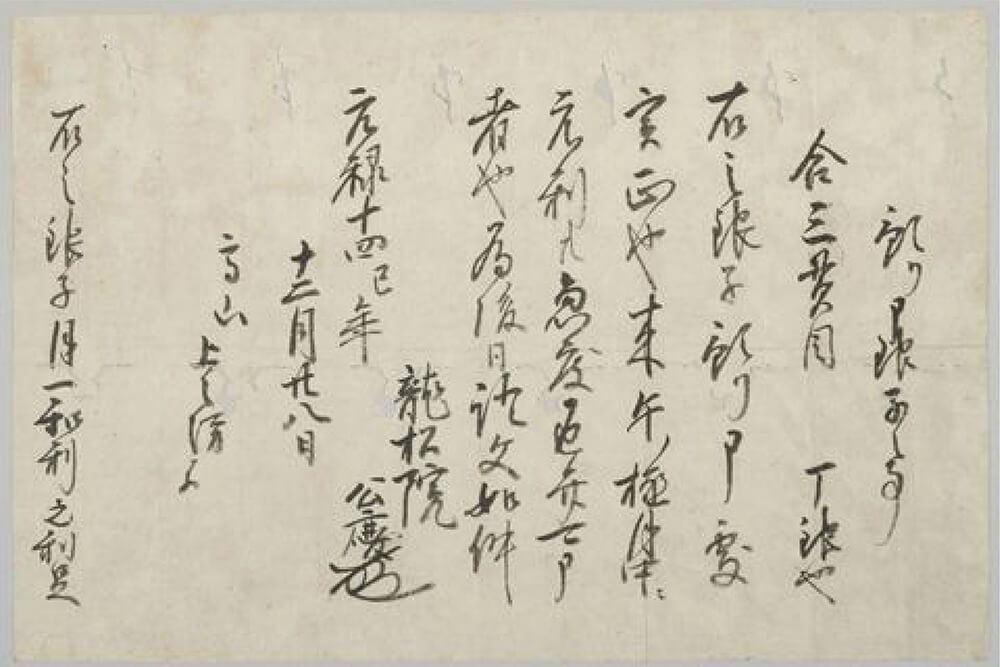 預り申銀子之事
合三貫目　丁銀也
右之銀子預り申処
実正也来午ノ極月中ニ
元利共急度返弁可申
者也為後日証文如件
龍松院
元禄十四巳年
公慶
十二月廿八日
高山
上之坊
右之銀子月一和利之利足